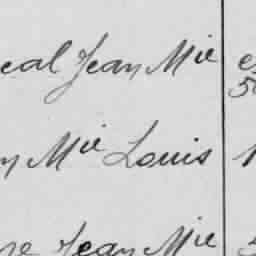 eal Jean Mie
Mie Louis
Jean Mie